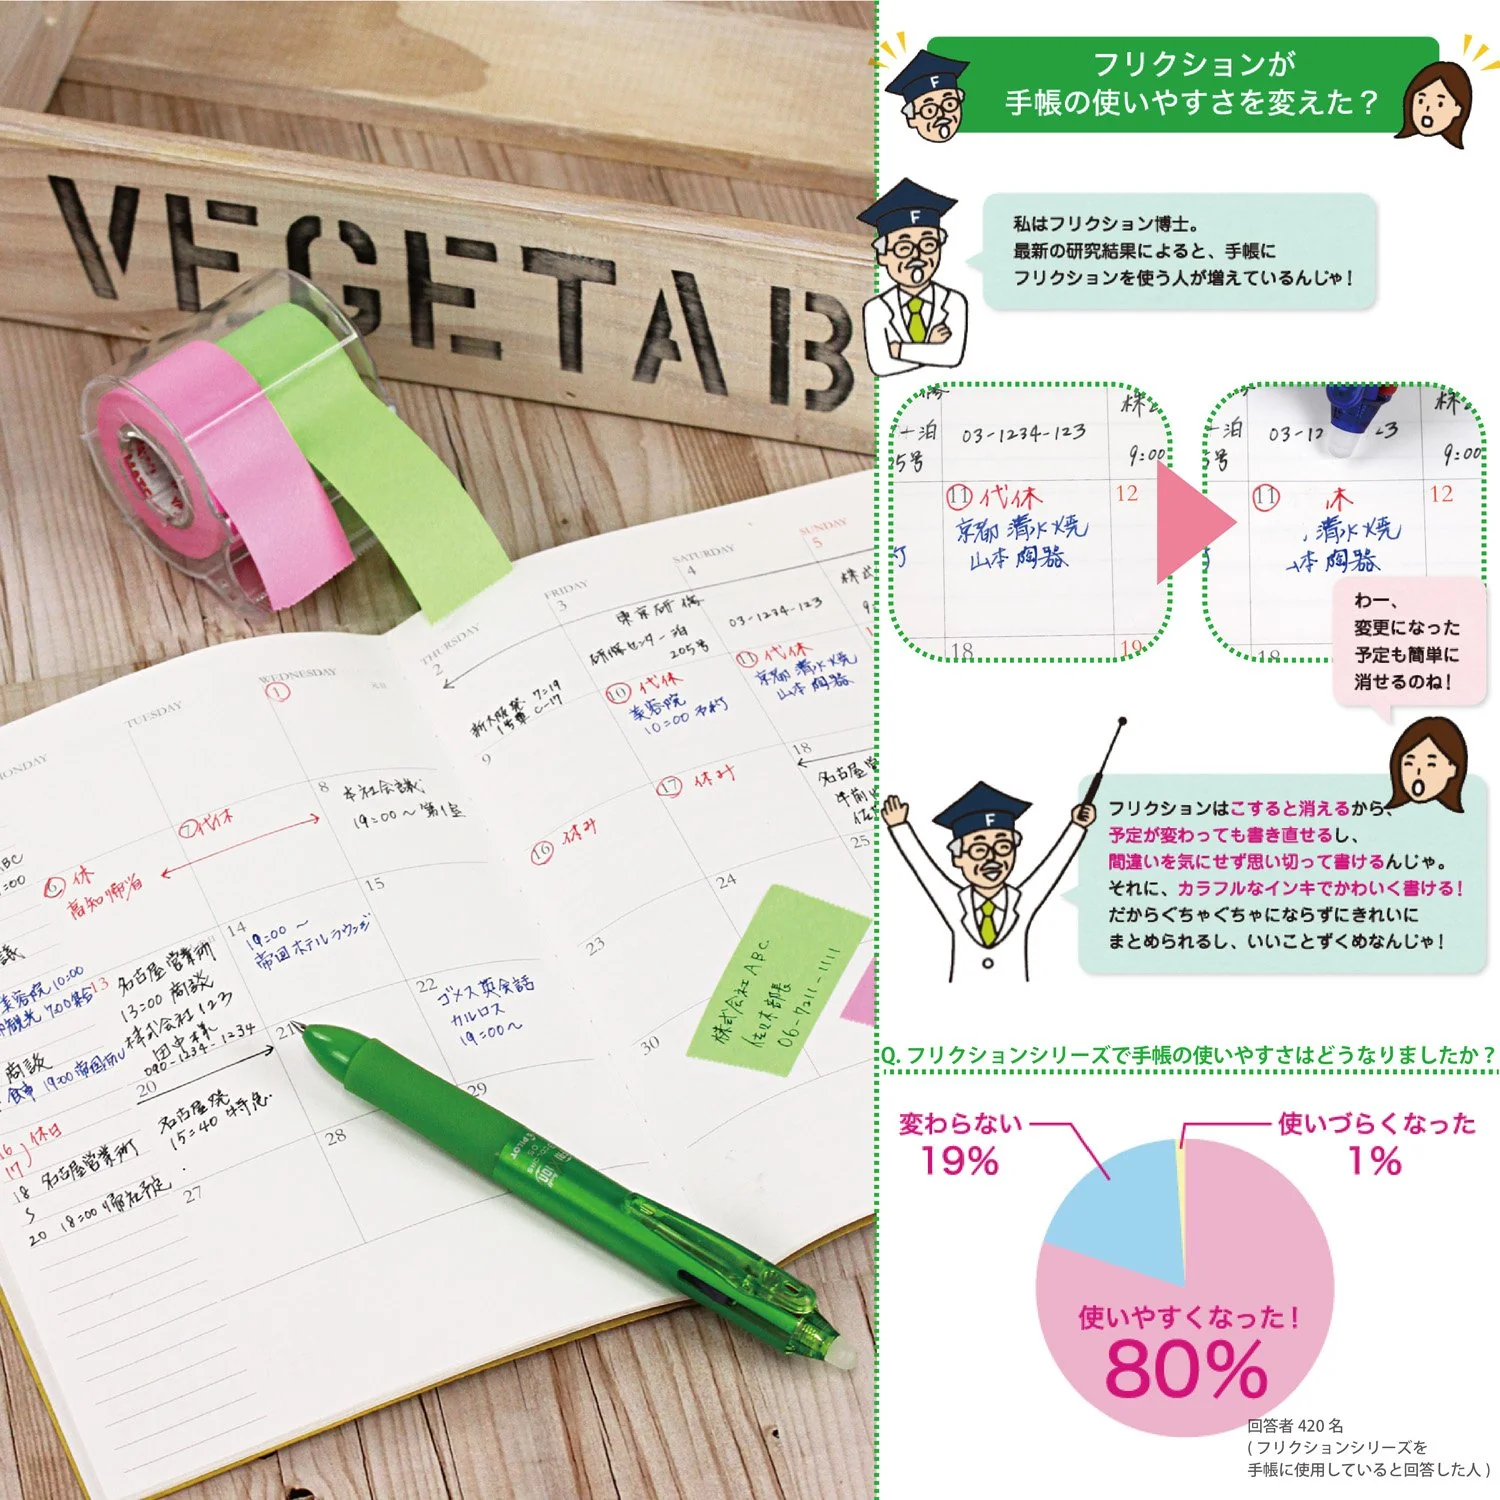 VEGETAB
MONDAY
TUESDAY
WEDNESDAY
THURSDAY
FRIDAY
SATURDAY
SUNDAY
1
2
3
4
5
東京研修
研修センター泊
205号
03-1234-123
新大阪発 7:19
1号車 C-17
⑩ 代休
美容院
10:00 予約
⑪ 代休
京都 清水焼
山本 陶器
⑥ 休
高知帰省
⑦ 代休
8
本社会議
19:00~ 第1会
9
⑯ 休み
⑰ 休み
18
名古屋
午前
13
名古屋営業所
13:00 商談
株式会社123
田中様
090-1234-1234
14
19:00~
帝国ホテルラウンジ
15
議
美容院10:00
商談
20
名古屋発
15:40 特急
21
22
ゴメス英会話
カルロス
19:00~
23
24
25
27
28
29
30
16
17
休日
18 名古屋営業所
20 18:00 帰社予定
株式会社ABC
佐々木部長
06-7211-1111
PILOT
フリクションが
手帳の使いやすさを変えた?
F
私はフリクション博士。
最新の研究結果によると、手帳に
フリクションを使う人が増えているんじゃ!
F
泊
03-1234-123
5号
9:00
⑪ 代休
12
京都 清水焼
山本 陶器
18
19
泊
03-12
3
号
9:00
⑪ 休
12
清水焼
本 陶器
18
わー、
変更になった
予定も簡単に
消せるのね!
F
フリクションはこすると消えるから、
予定が変わっても書き直せるし、
間違いを気にせず思い切って書けるんじゃ。
それに、カラフルなインキでかわいく書ける!
だからぐちゃぐちゃにならずにきれいに
まとめられるし、いいことずくめなんじゃ!
Q. フリクションシリーズで手帳の使いやすさはどうなりましたか?
変わらない
19%
使いづらくなった
1%
使いやすくなった!
80%
回答者 420 名
( フリクションシリーズを
手帳に使用していると回答した人 )